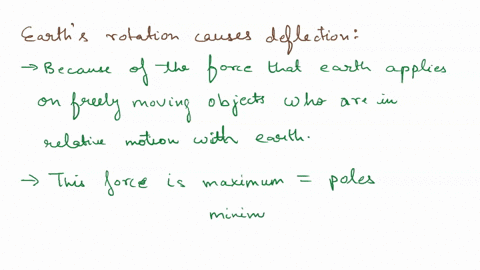 Earth's rotation causes deflection:
→ Because of the force that earth applies
on freely moving objects who are in
relative motion with earth.
→ This force is maximum = poles
minim